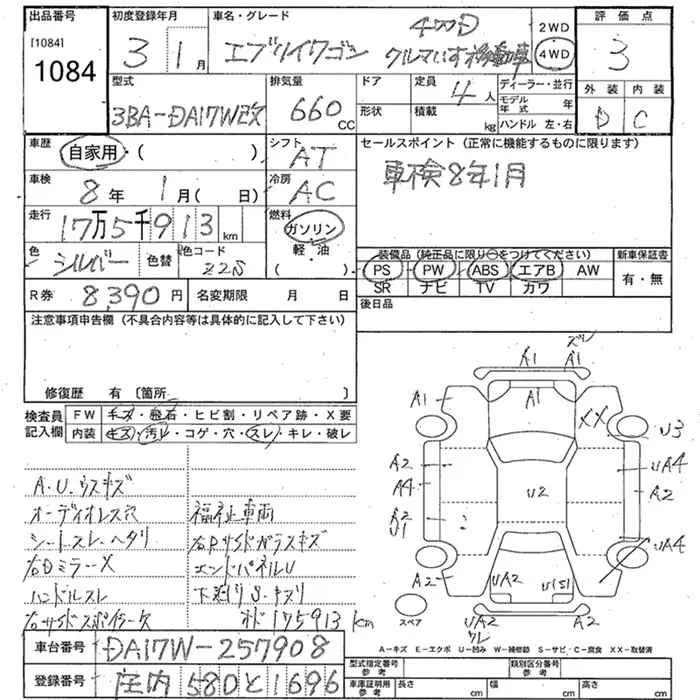 出品番号
[1084]
1084
初度登録年月
3 1 月
車名・グレード
4WD
エブリイワゴン クルマいす移動車
2WD
4WD
評価点
3
外装 内装
D C
型式
3BA-DA17W改
排気量
660 CC
ドア
形状
定員
4 人
積載
kg
ディーラー・並行
モデル年式 年
ハンドル 左・右
車歴
自家用・( )
シフト
AT
セールスポイント (正常に機能するものに限ります)
車検8年1月
車検
8 年 1 月 ( 日)
冷房
AC
走行
17万5千913 km
燃料
ガソリン
軽・油
( )
色
シルバー
色替
色コード
Z2S
装備品 (純正品に限り○をつけてください)
PS PW ABS エアB AW
SR ナビ TV カワ
新車保証書
有・無
R券 8,390 円
名変期限 月 日
後日品
注意事項申告欄 (不具合内容等は具体的に記入して下さい)
修復歴 有 〔箇所 〕
検査員記入欄
FW キズ・飛石・ヒビ割・リペア跡・X要
内装 キズ・汚レ・コゲ・穴・スレ・キレ・破レ
A.U.ウスキズ
オーディオレス穴
シートスレ・ヘタリ
右Dミラー X
ハンドルスレ
福祉車両
エンドパネルU
下廻りS・キズリ
メド175913km
A1
ズレ
A1
A1
A1
XX
U3
UA4
A2
UA4
A2
A4
A2
U1
U2
A2
UA2
U1S1
UA2
クレ
A2
スペア
A-キズ E-エクボ U-凹み W-補修跡 S-サビ・C-腐食 XX-取替済
車台番号
DA17W-257908
登録番号
庄内 580 と 1696
型式指定番号
参考
類別区分番号
参考
車庫証明用
参考
長さ cm
幅 cm
高さ cm